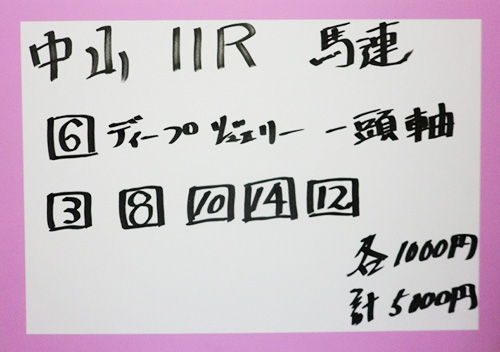 中山 11R 馬連
6 ディープジュエリー 一頭軸
3 8 10 14 12
各1000円
計5000円